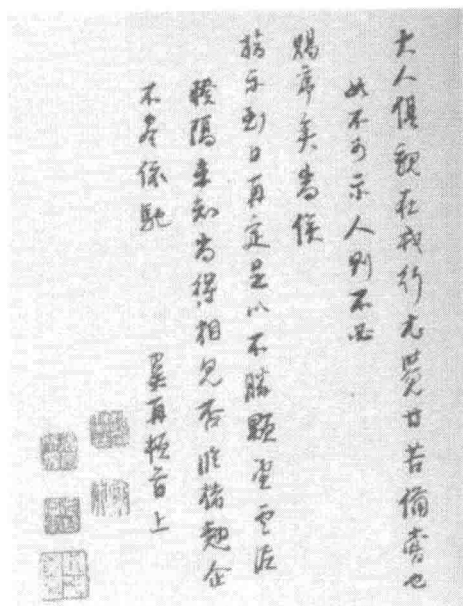 大人俱親在戎行尤覺甘苦備嘗也
此不可示人則不必
賜序矣尚俟
指示到日再定是以不勝顒望雲泥
暌隔未知尚得相見否臨楮翹企
不盡依馳 再頓首上